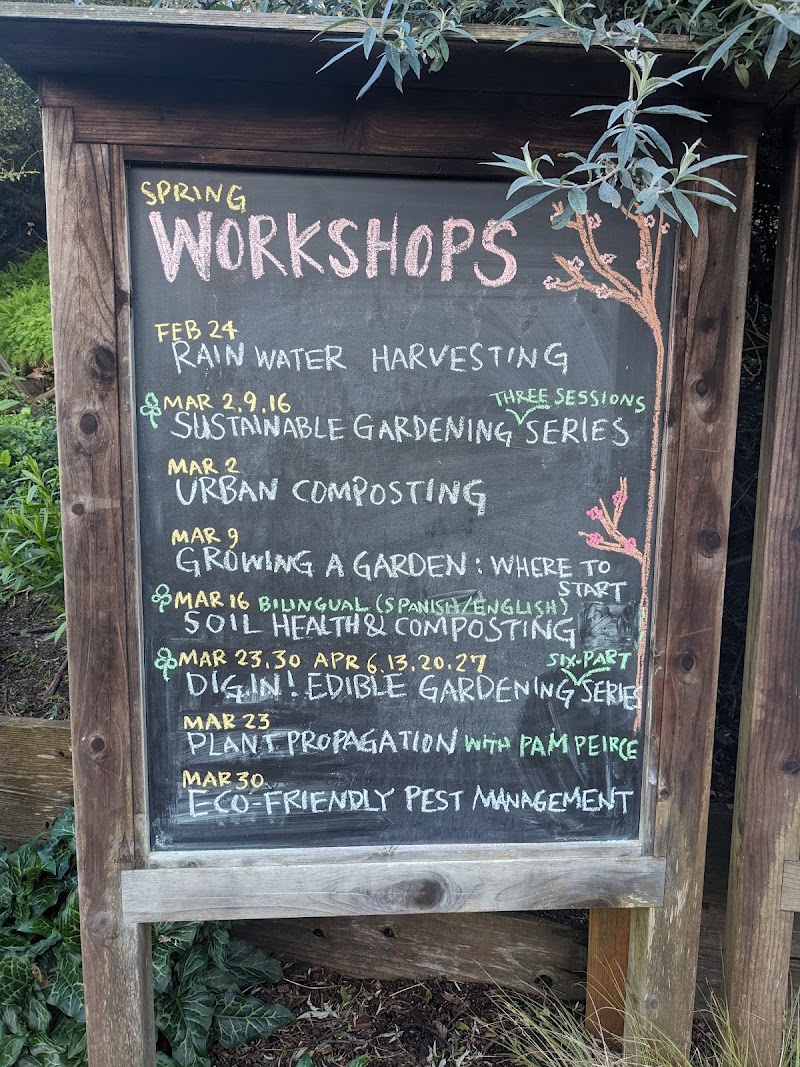 SPRING
WORKSHOPS
FEB 24
RAIN WATER HARVESTING
MAR 2.9.16 THREE SESSIONS
SUSTAINABLE GARDENING SERIES
MAR 2
URBAN COMPOSTING
MAR 9
GROWING A GARDEN: WHERE TO
START
MAR 16 BILINGUAL (SPANISH/ENGLISH)
SOIL HEALTH & COMPOSTING
MAR 23.30 APR 6.13.20.27 SIX-PART
DIG IN! EDIBLE GARDENING SERIES
MAR 23
PLANT PROPAGATION WITH PAM PEIRCE
MAR 30
ECO-FRIENDLY PEST MANAGEMENT